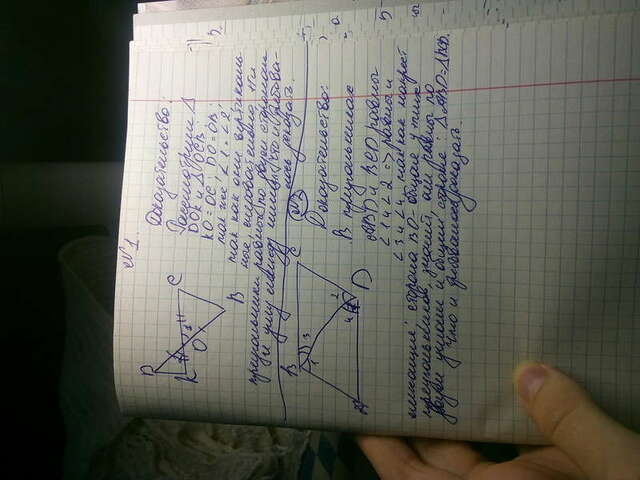 №1.
Доказательство:
Рассмотрим Δ
DOK и Δ OCB;
KO = OC, DO = OB;
так же, ∠1 = ∠2,
так как они вертикаль-
ные, следовательно эти
треугольники равны по двум сторонам
и углу между ними. Что и требова-
лось доказать.
D
K
C
O
1
2
B
№2
Доказательство:
В треугольниках
ABD и BCD равны
∠1 и ∠2 => равны и
∠3 и ∠4, так как накрест
лежащие; сторона BD - общая у этих
треугольников, значит, они равны по
двум углами и общей стороне: ΔABD = Δ
Что и требовалось доказать.
B
C
1
3
2
4
A
D